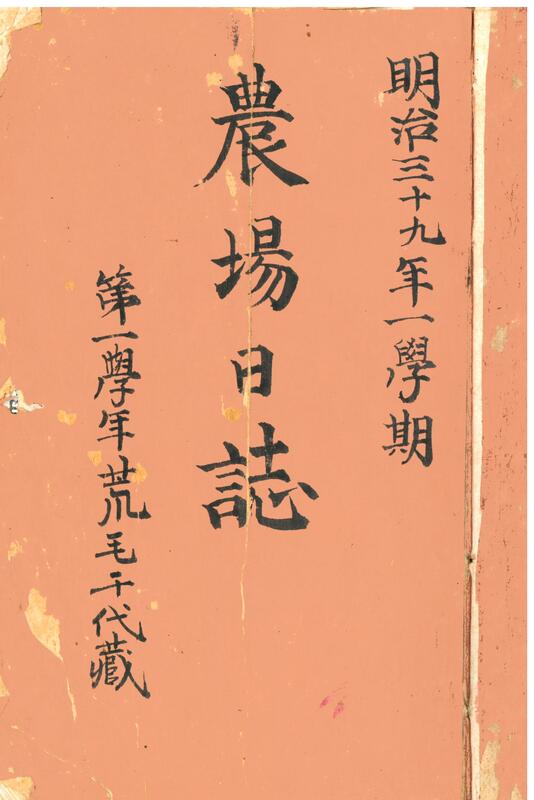 明治三十九年一學期
農場日誌
第一學年荒毛千代藏